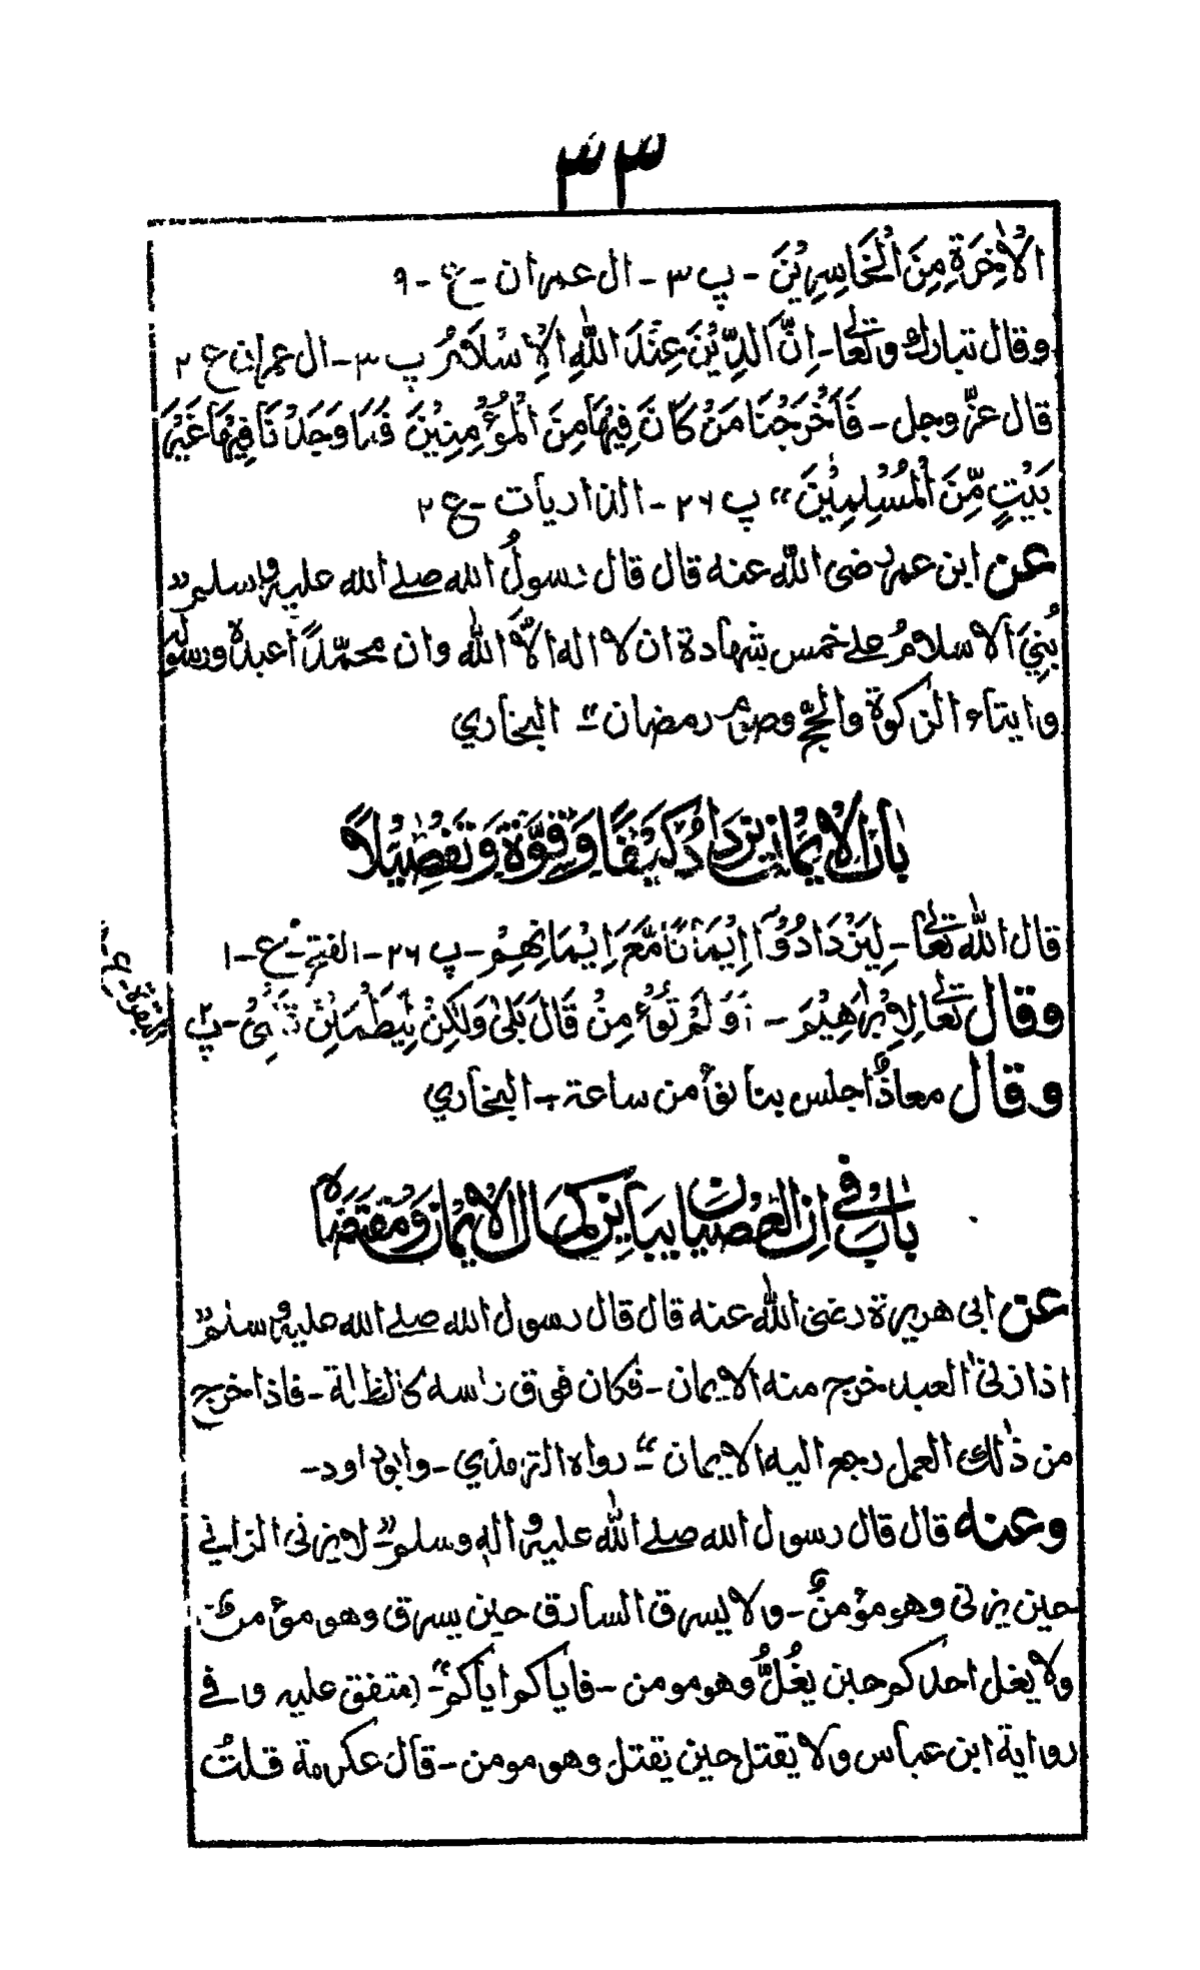 ٣٣
الْاٰخِرَةِ مِنَ الْخَاسِرِيْنَ - پ ٣ - ال عمران - ع - ٩
وقال تبارك وتعالٰى - اِنَّ الدِّيْنَ عِنْدَ اللّٰهِ الْاِسْلَامُ پ ٣ - ال عمران ع ٢
قال عزّ وجل - فَاَخْرَجْنَا مَنْ كَانَ فِيْهَا مِنَ الْمُؤْمِنِيْنَ فَمَا وَجَدْنَا فِيْهَا غَيْرَ
بَيْتٍ مِّنَ الْمُسْلِمِيْنَ" پ ٢٦ - الذاريات - ع ٢
عن ابن عمر رضى اللّٰه عنه قال قال رسولُ الله صلے الله عليه وسلم"
بُنِيَ الاسلامُ علے خمس شهادة ان لا اله الّا اللّٰه وان محمّدًا عبدهٗ ورسوله
وايتاء الزكوة والحجّ وصوم رمضان" - البخاري
بَابُ الْاِيْمَانِ يَزْدَادُ كَيْفًا وَقُوَّةً وَتَفْصِيْلًا
قال اللّٰه تعالٰى - لِيَزْدَادُوْٓا اِيْمَانًا مَّعَ اِيْمَانِهِمْ - پ ٢٦ - الفتح - ع - ١
وقال تعالٰى لِاِبْرَاهِيْمَ - اَوَ لَمْ تُؤْمِنْ قَالَ بَلٰى وَلٰكِنْ لِّيَطْمَئِنَّ قَلْبِىْ - پ
البقرة - ع -
وقال معاذٌ اجلس بنا نؤمن ساعة - البخاري
بَابٌ فِي اَنَّ الْعِصْيَانَ يُبَايِنُ كَمَالَ الْاِيْمَانِ وَمُقْتَضَاهُ
عن ابى هريرة رضى اللّٰه عنه قال قال رسول الله صلے الله عليه وسلم"
اذا زنى العبد خرج منه الايمان - فكان فوق راسه كالظلة - فاذا خرج
من ذٰلك العمل رجع اليه الايمان" - رواه الترمذي - وابوداود -
وعنه قال قال رسول الله صلے اللّٰه عليه واٰله وسلم" - لا يزنى الزاني
حين يزنى وهو مؤمنٌ - ولا يسرق السارق حين يسرق وهو مؤمن
ولا يغل احدكم حين يغُلُّ وهو مومن - فاياكم اياكم" - (متفق عليه وفي
رواية ابن عباس ولا يقتل حين يقتل وهو مومن - قال عكرمة قلتُ